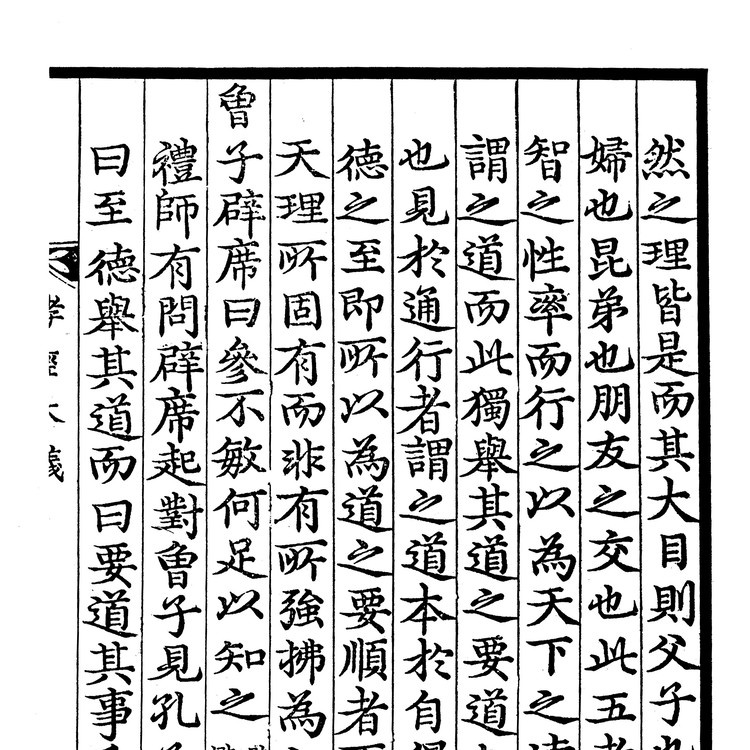 然之理皆是而其大目則父子
婦也昆弟也朋友之交也此五
智之性率而行之以為天下之
謂之道而此獨舉其道之要道
也見於通行者謂之道本於自
德之至即所以為道之要順者
天理所固有而非有所強拂為
曾子辟席曰參不敏何足以知之
禮師有問辟席起對曾子見孔
曰至德舉其道而曰要道其事
孝經大義